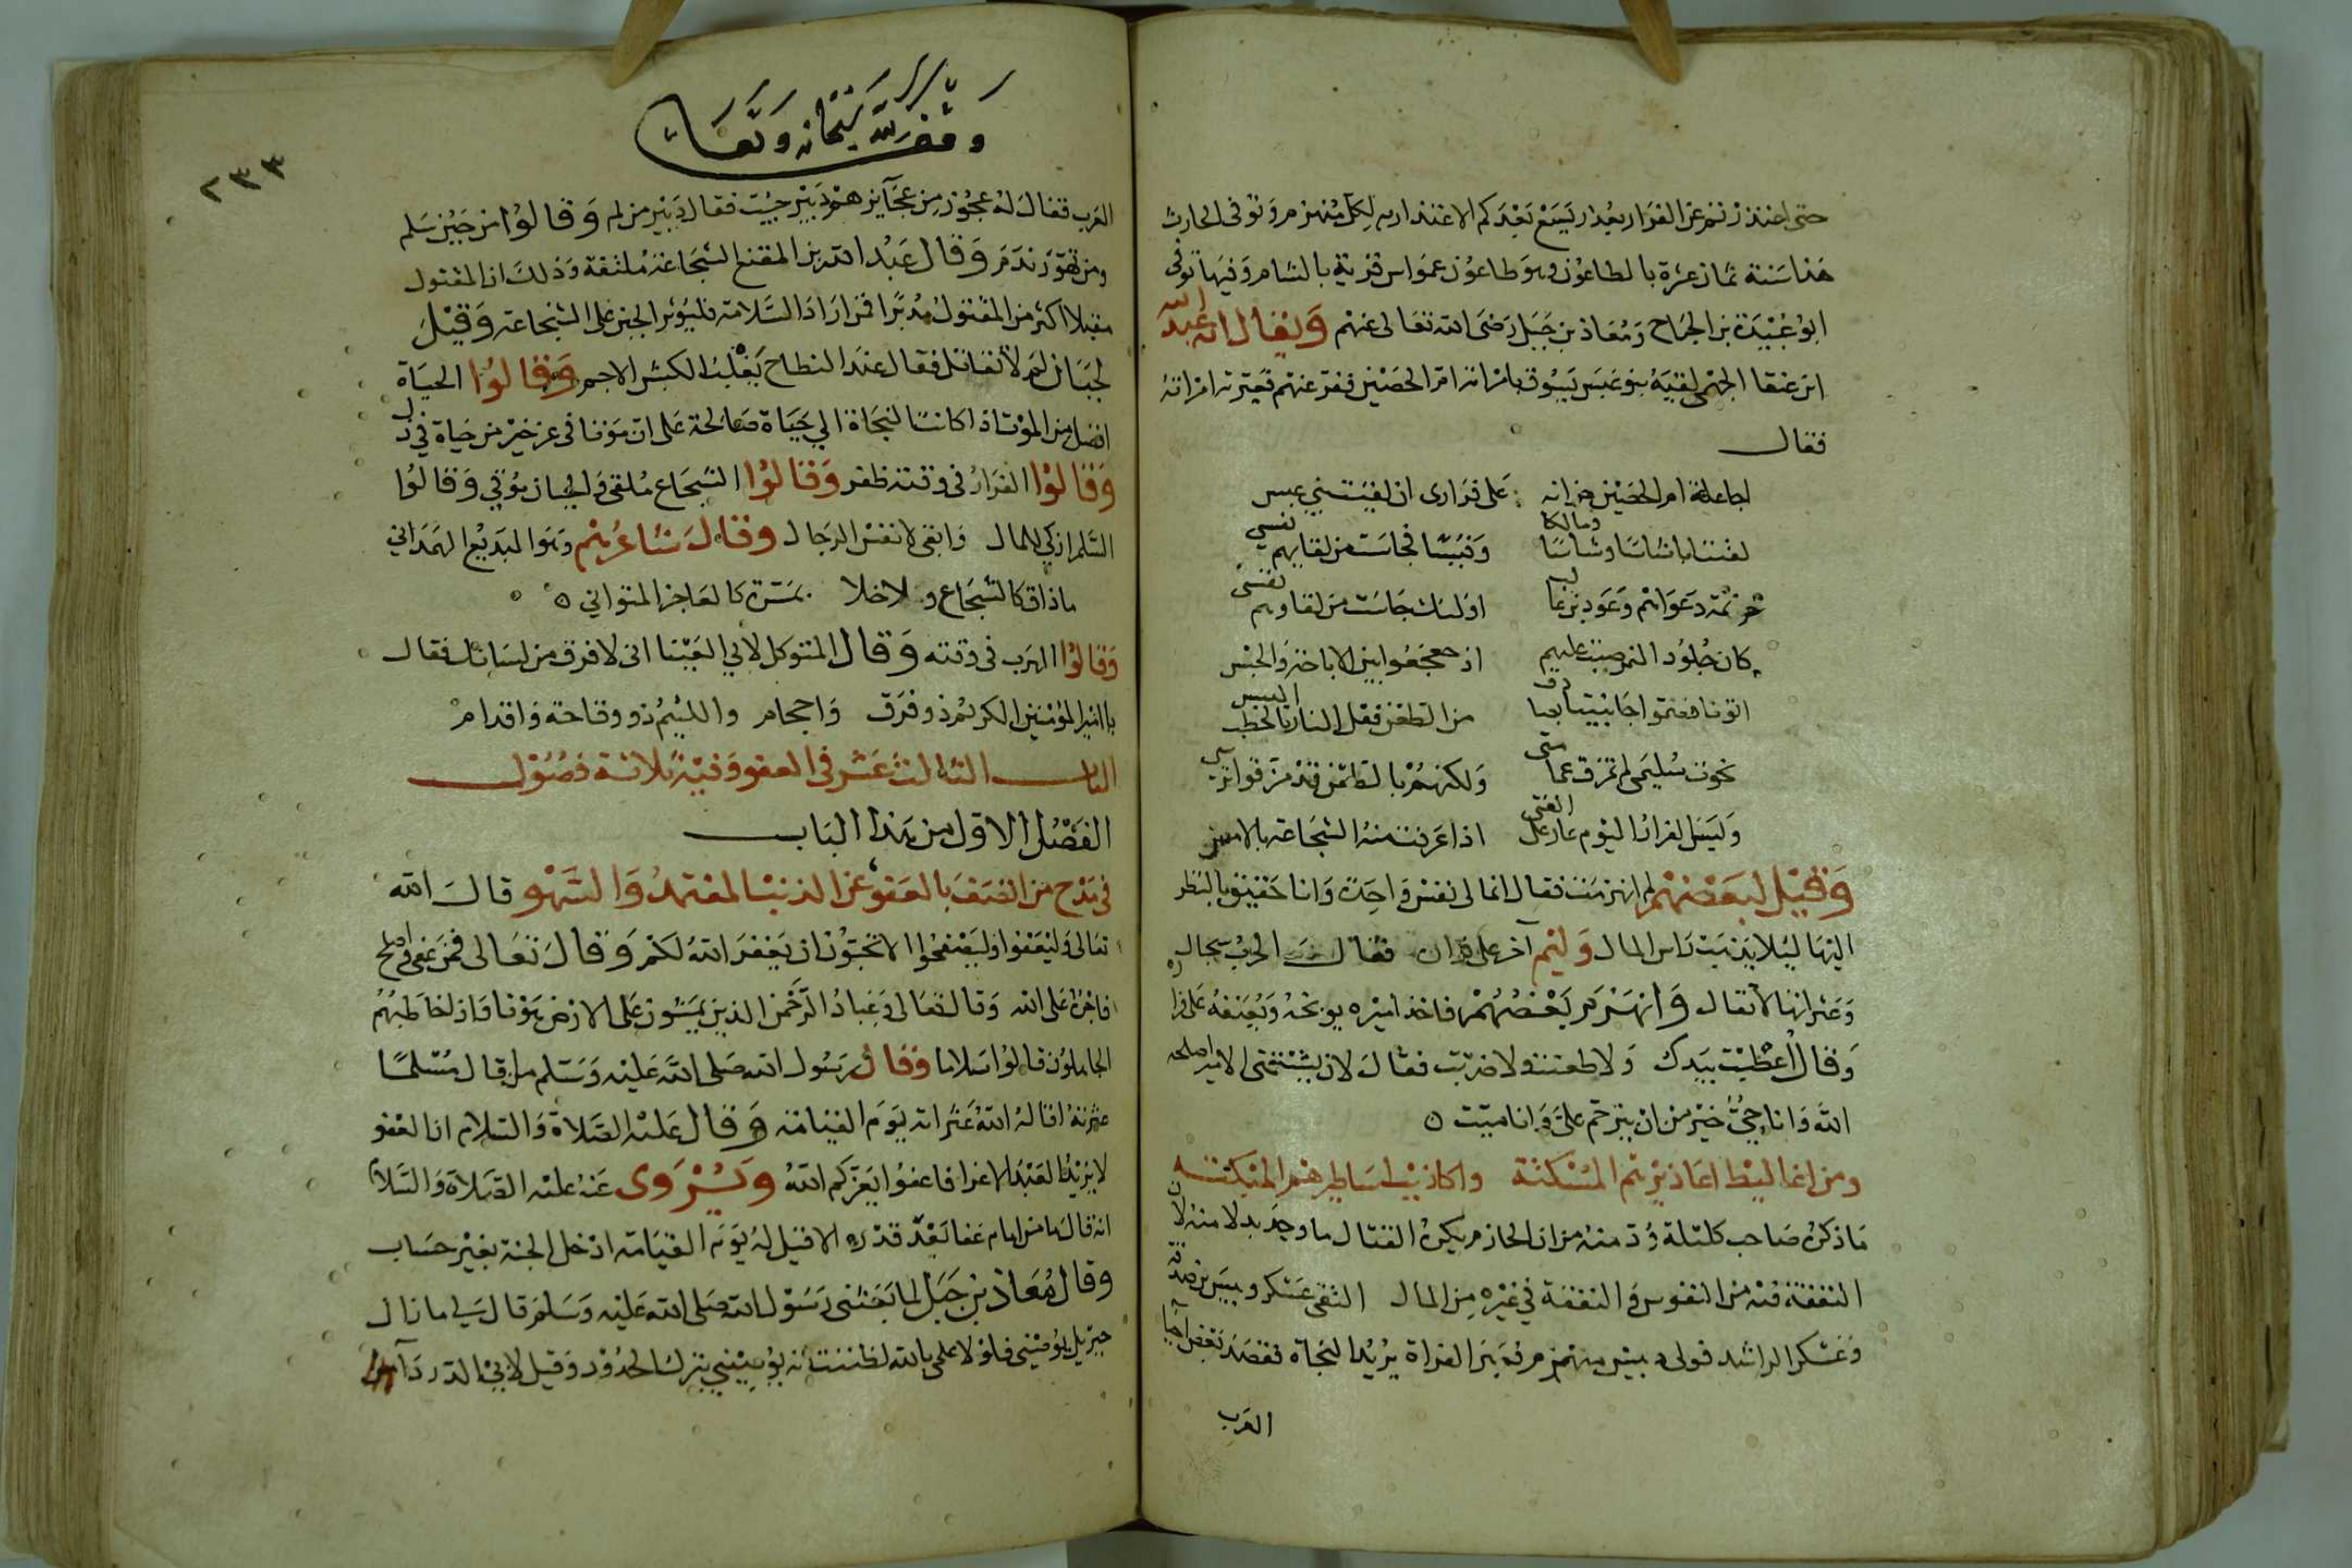 حتى اعتذرتم عن الفرار بعذار يسع بعدكم الاعتذار به لكل منهزم وتوفى الحارث
هذا سنة ثمان عشرة بالطاعون وهو طاعون عمواس قرية بالشام وفيها توفى
ابو عبيدة بن الجراح ومعاذ بن جبل رضى الله تعالى عنهم ويقال ان عبد الله
ابن عنقا الجهمى لقيه بنو عبس يسوق بامراته ام الحصين ففر عنهم فعيرته امراته
فقال
اجاعلة ام الحصين خزانه على فرارى ان لقيت بني عبس
لقيت اباشاسا وشاسا ومالكا وقيسا فجاشت من لقايهم نفسي
كان جلود النمر جيبت عليهم اذ جعجعوا بين الاباخة والحبس
اتونا فضموا جانبينا من الطعن فعل النار بالحطب اليبس
وليس الفرار اليوم عار على الفتى اذا عرفت منه الشجاعة بالامس
وقيل لبعضهم لم انهزمت فقال انما لى نفس واحدة وانا حقيق بالنظر
اليها ليلا يذهب راس المال وليم آخر على فقال الحرب سجال
وعثراتها لا تقال وانهزم بعضهم فاخذ اميره يوبخه ويعنفه على
وقال اعطيت بيدك ولا طعنت ولا ضربت فقال لان يشتمني الامير اصلحه
الله وانا حي خير من ان يترحم على وانا ميت
ومن اغاليط اعاذيرهم المسكتة واكاذيب اساطيرهم المنكتة
ما ذكره صاحب كليلة ودمنة من ان الحازم يكره القتال ما وجد بدلا منه لان
النفقة فيه من النفوس والنفقة في غيره من المال التقى عسكر وبيس بن صدقة
وعسكر الراشد فولى وبيس منهزم وعبر الفراة يريد النجاة فقصد بعض احيا
العرب
وقف لله سبحانه وتعالى
٢٣٣
العرب فقال له عجوز من عجائزهم دبير جيت فقال دبير من لم وقالوا من جبن سلم
ومن تهور ندم وقال عبد الله بن المقفع الشجاعة متلفة وذلك ان المقتول
مقبلا اكثر من المقتول مدبرا فمن اراد السلامة فليؤثر الجبن على الشجاعة وقيل
لجبان لم لا تقاتل فقال عند النطاح يغلب الكبش الاجم وقالوا الحياة
افضل من الموت اذا كانت النجاة الى حياة صالحة على ان موتا فى عز خير من حياة في ذل
وقالوا الفرار فى وقته ظفر وقالوا الشجاع ملقى والجبان موقي وقالوا
السلم ازكي للمال وابقى لانفس الرجال وقال شاعرهم وهو البديع الهمداني
ماذاق كالشجاع ولا خلا بمسرة كالعاجز المتواني
وقالوا الهرب فى وقته وقال المتوكل لابي العينا انى لافرق من لسانك فقال
يا امير المؤمنين الكريم ذو فرق واحجام واللئيم ذو وقاحة واقدام
الباب الثالث عشر فى العفو وفيه ثلاثة فصول
الفصل الاول من هذا الباب
فى مدح من اتصف بالعفو عن الذنب المعتمد والسهو قال الله
تعالى وليعفوا وليصفحوا الا تحبون ان يغفر الله لكم وقال تعالى فمن عفى واصلح
فاجره على الله وقال تعالى وعباد الرحمن الذين يمشون على الارض هونا واذا خاطبهم
الجاهلون قالوا سلاما وقال رسول الله صلى الله عليه وسلم من اقال مسلما
عثرته اقاله الله عثراته يوم القيامة وقال عليه الصلاة والسلام ان العفو
لا يزيد العبد الا عزا فاعفوا يعزكم الله ويروى عنه عليه الصلاة والسلام
انه قال ما من امام عفا بعد قدره الا قيل له يوم القيامة ادخل الجنة بغير حساب
وقال معاذ بن جبل لما بعثنى رسول الله صلى الله عليه وسلم قال لي ما زال
جبريل يوصيني فلولا علمى بالله لظننت انه يوصيني بترك الحدود وقيل لابي الدرداء